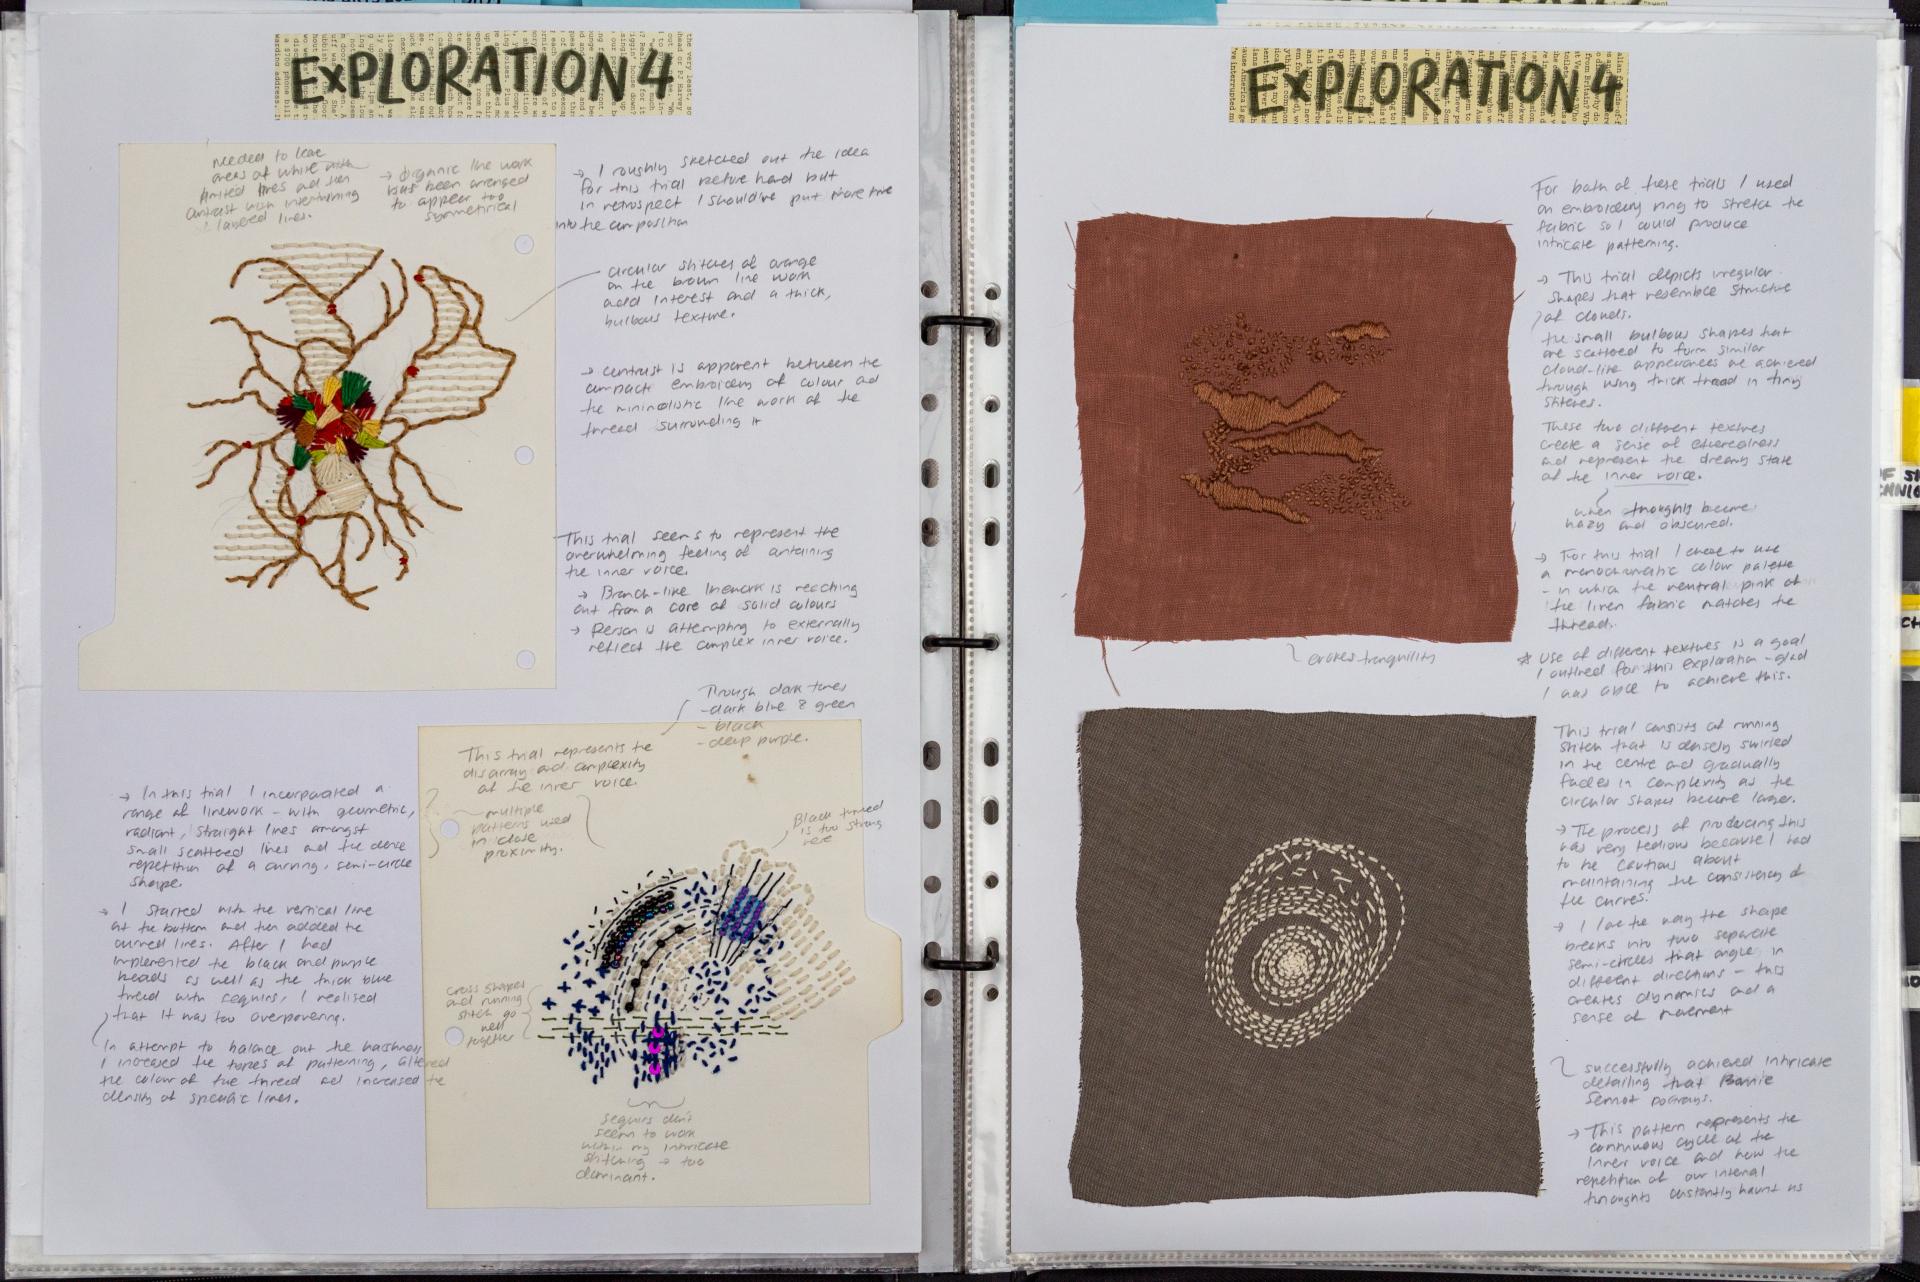 EXPLORATION 4
needed to leave
areas of white with
limited lines and then
contrast with intertwining
layered lines.
→ Organic line work
has been arranged
to appear too
symmetrical
→ I roughly sketched out the idea
for this trial before hand but
in retrospect I should've put more time
into the composition
circular stitches of orange
on the brown line work
add interest and a thick,
bulbous texture.
→ contrast is apparent between the
compact embroidery of colour and
the minimalistic line work of the
thread surrounding it
This trial seems to represent the
overwhelming feeling of containing
the inner voice.
→ Branch-like linework is reaching
out from a core of solid colours
→ Person is attempting to externally
reflect the complex inner voice.
Through dark tones
- dark blue & green
- black
- deep purple.
This trial represents the
disarray and complexity
of the inner voice.
multiple
patterns used
in close
proximity.
Black thread
is too strong
here
→ In this trial I incorporated a
range of linework - with geometric,
radiant, straight lines amongst
small scattered lines and the dense
repetition of a curving, semi-circle
shape.
→ I started with the vertical line
at the bottom and then added the
curved lines. After I had
implemented the black and purple
beads as well as the thick blue
thread with sequins, I realised
that it was too overpowering.
In attempt to balance out the harshness
I increased the types of patterning, altered
the colour of the thread and increased the
density of specific lines.
cross shapes
and running
stitch go
well
together
sequins don't
seem to work
within my intricate
stitching → too
dominant.
EXPLORATION 4
For both of these trials I used
an embroidery ring to stretch the
fabric so I could produce
intricate patterning.
→ This trial depicts irregular
shapes that resemble structure
of clouds.
The small bulbous shapes that
are scattered to form similar
cloud-like appearances are achieved
through using thick thread in tiny
stitches.
These two different textures
create a sense of etherealness
and represent the dreamy state
of the inner voice.
when thoughts become
hazy and obscured.
→ For this trial I chose to use
a monochromatic colour palette
- in which the neutral pink of
the linen fabric matches the
thread.
evokes tranquility
* Use of different textures is a goal
I outlined for this exploration - glad
I was able to achieve this.
This trial consists of running
stitch that is densely swirled
in the centre and gradually
fades in complexity as the
circular shapes become larger.
→ The process of producing this
was very tedious because I had
to be cautious about
maintaining the consistency of
the curves.
→ I love the way the shape
breaks into two separate
semi-circles that angle in
different directions - this
creates dynamics and a
sense of movement
successfully achieved intricate
detailing that
Sennot portrays.
→ This pattern represents the
continuous cycle of the
inner voice and how the
repetition of our internal
thoughts constantly haunt us